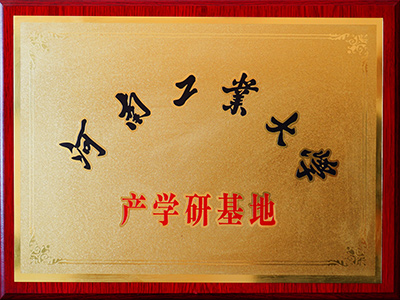 河南工業大学
产学研基地